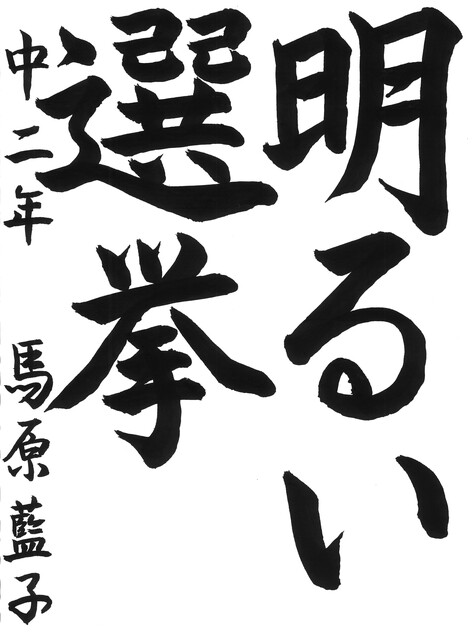 明るい
選挙
中二年 馬原藍子